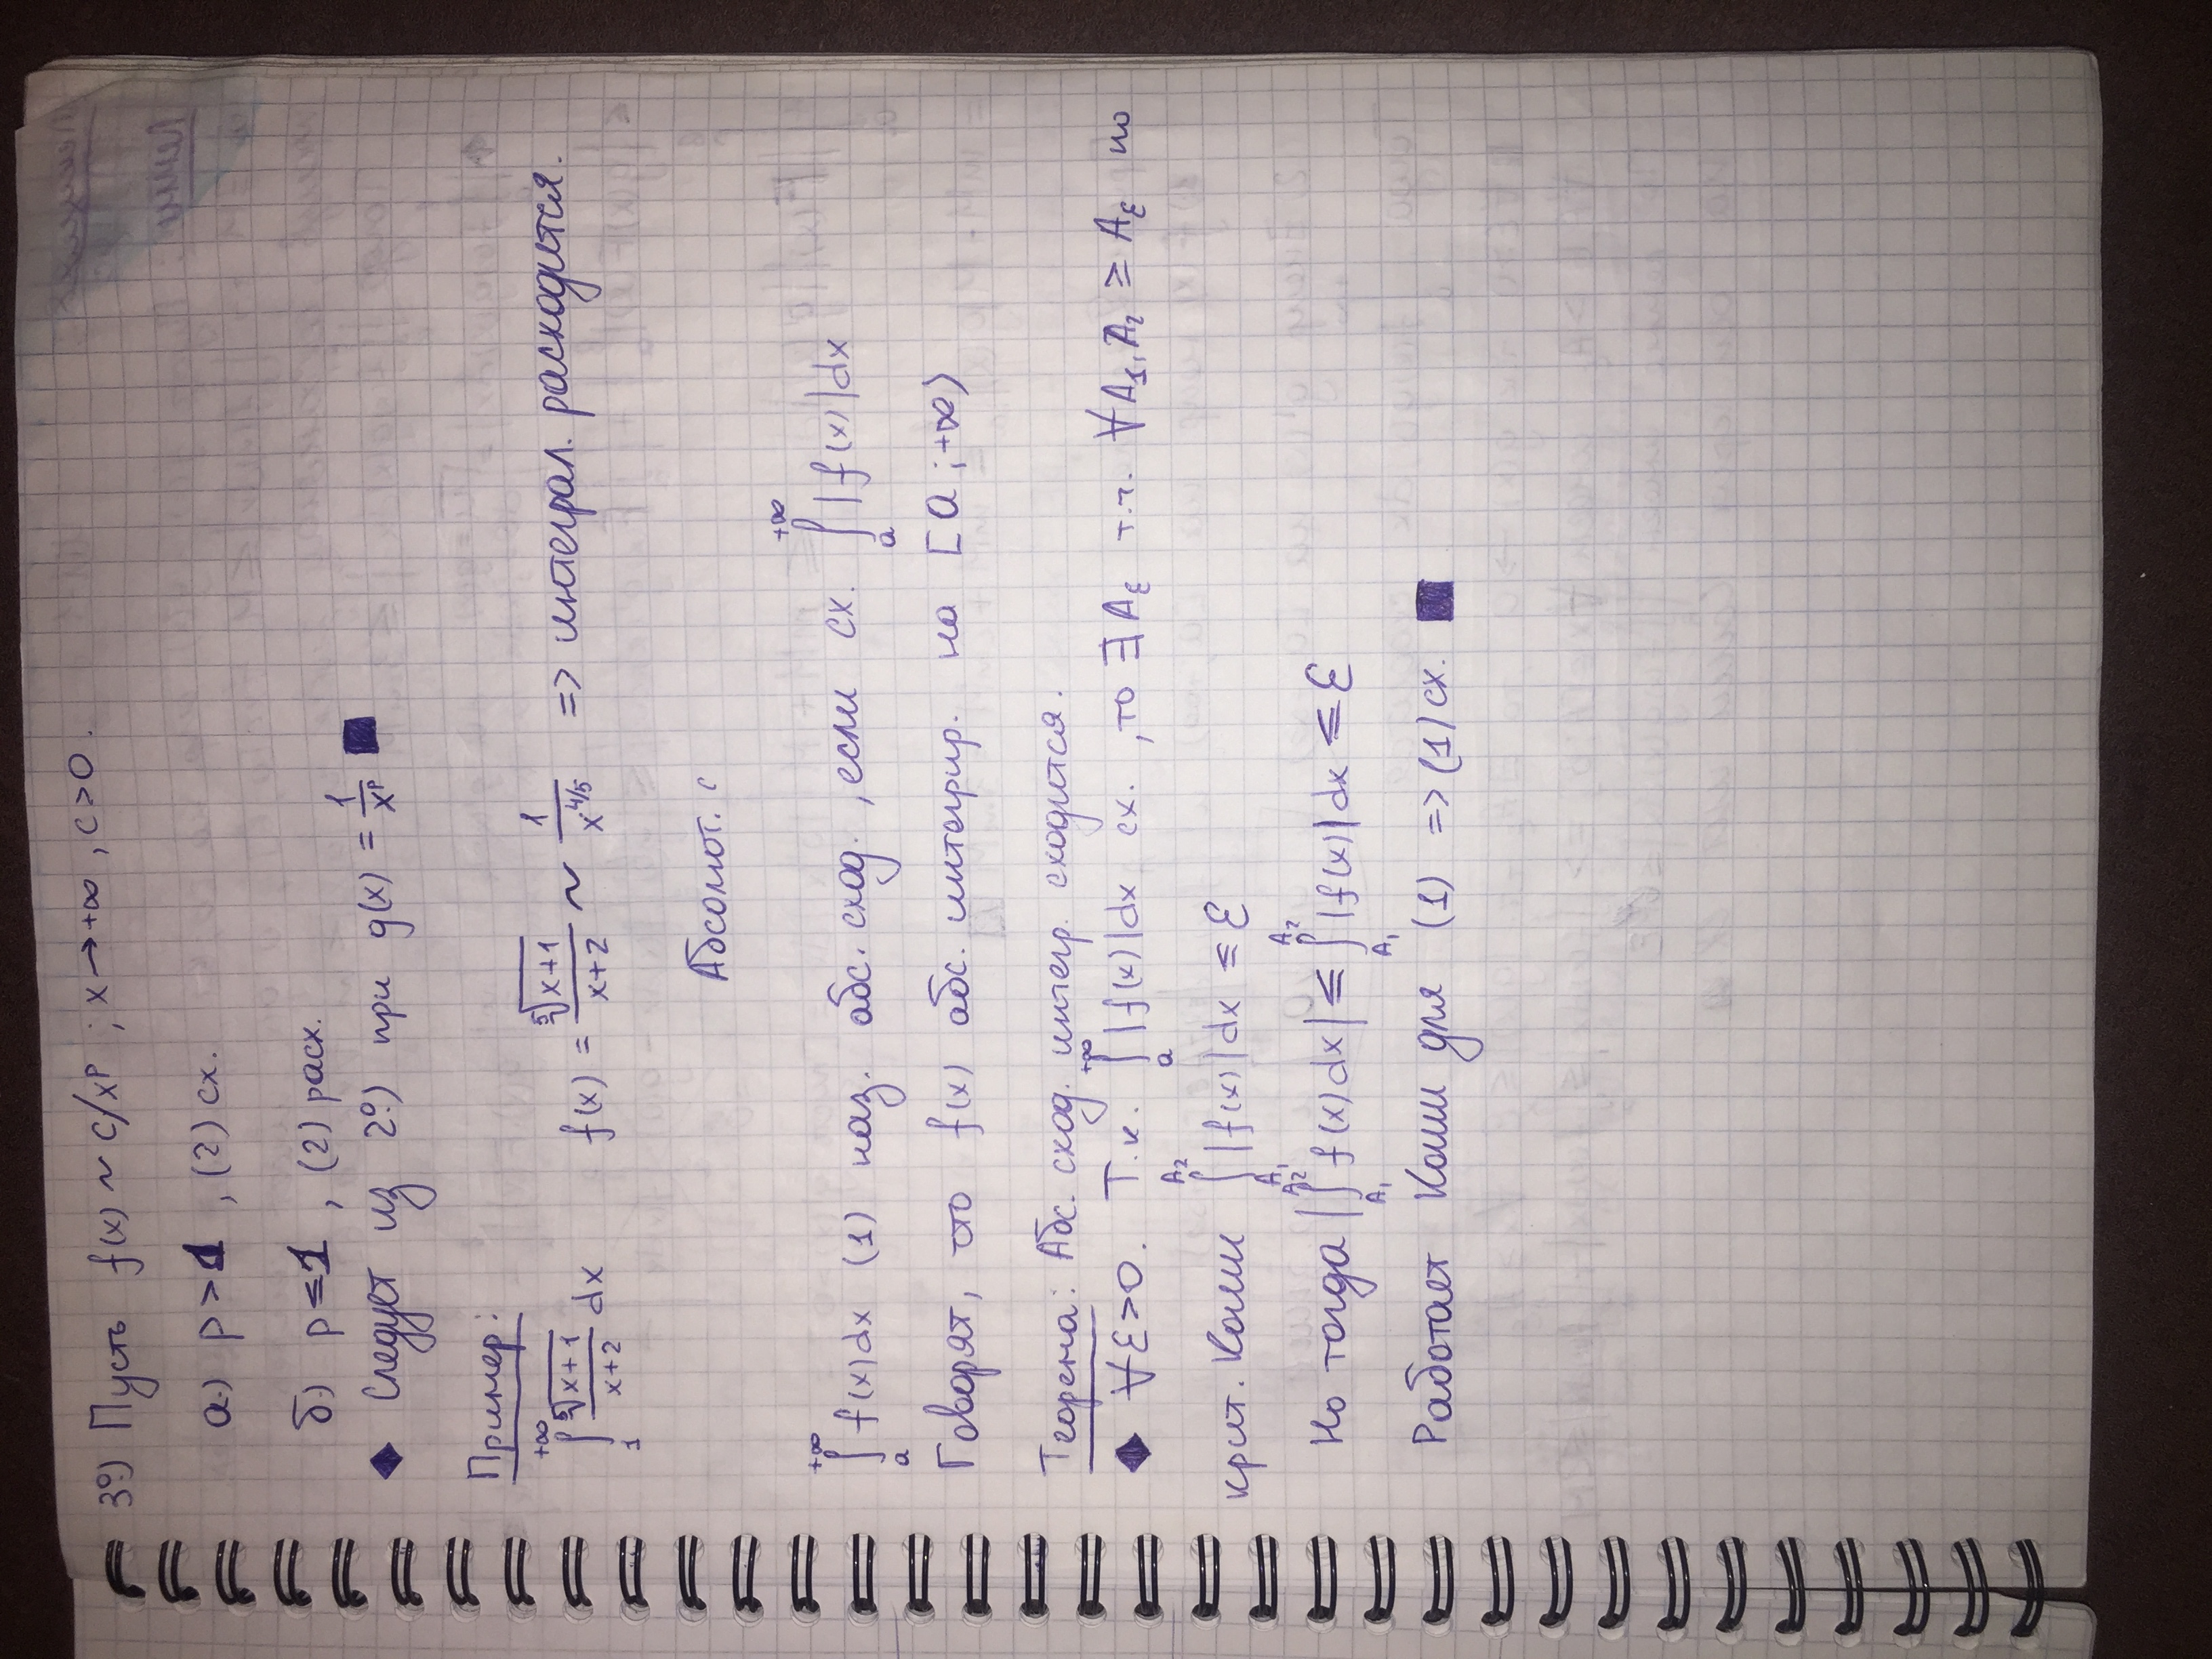 3º) Пусть f(x) ~ c/x^p ; x → +∞ , c > 0 .
а.) p > 1 , (2) сх.
б.) p ≤ 1 , (2) расх.
◆ Следует из 2º.) при g(x) = 1/x^p ■
Пример:
∫_1^{+∞} ⁵√(x+1)/(x+2) dx f(x) = ⁵√(x+1)/(x+2) ~ 1/x^{4/5} => интеграл. расходится.
Абсолют. с
∫_a^{+∞} f(x)dx (1) наз. абс. сход. , если сх. ∫_a^{+∞} |f(x)|dx
Говорят, что f(x) абс. интегрир. на [a ; +∞)
Теорема: Абс. сход. интегр. сходится.
◆ ∀ε>0. Т.к. ∫_a^{+∞} |f(x)|dx сх. , то ∃A_ε т.ч. ∀A_1, A_2 ≥ A_ε по
крит. Коши ∫_{A_1}^{A_2} |f(x)|dx ≤ ε
Но тогда |∫_{A_1}^{A_2} f(x)dx| ≤ ∫_{A_1}^{A_2} |f(x)|dx ≤ ε
Работает Коши для (1) => (1) сх. ■